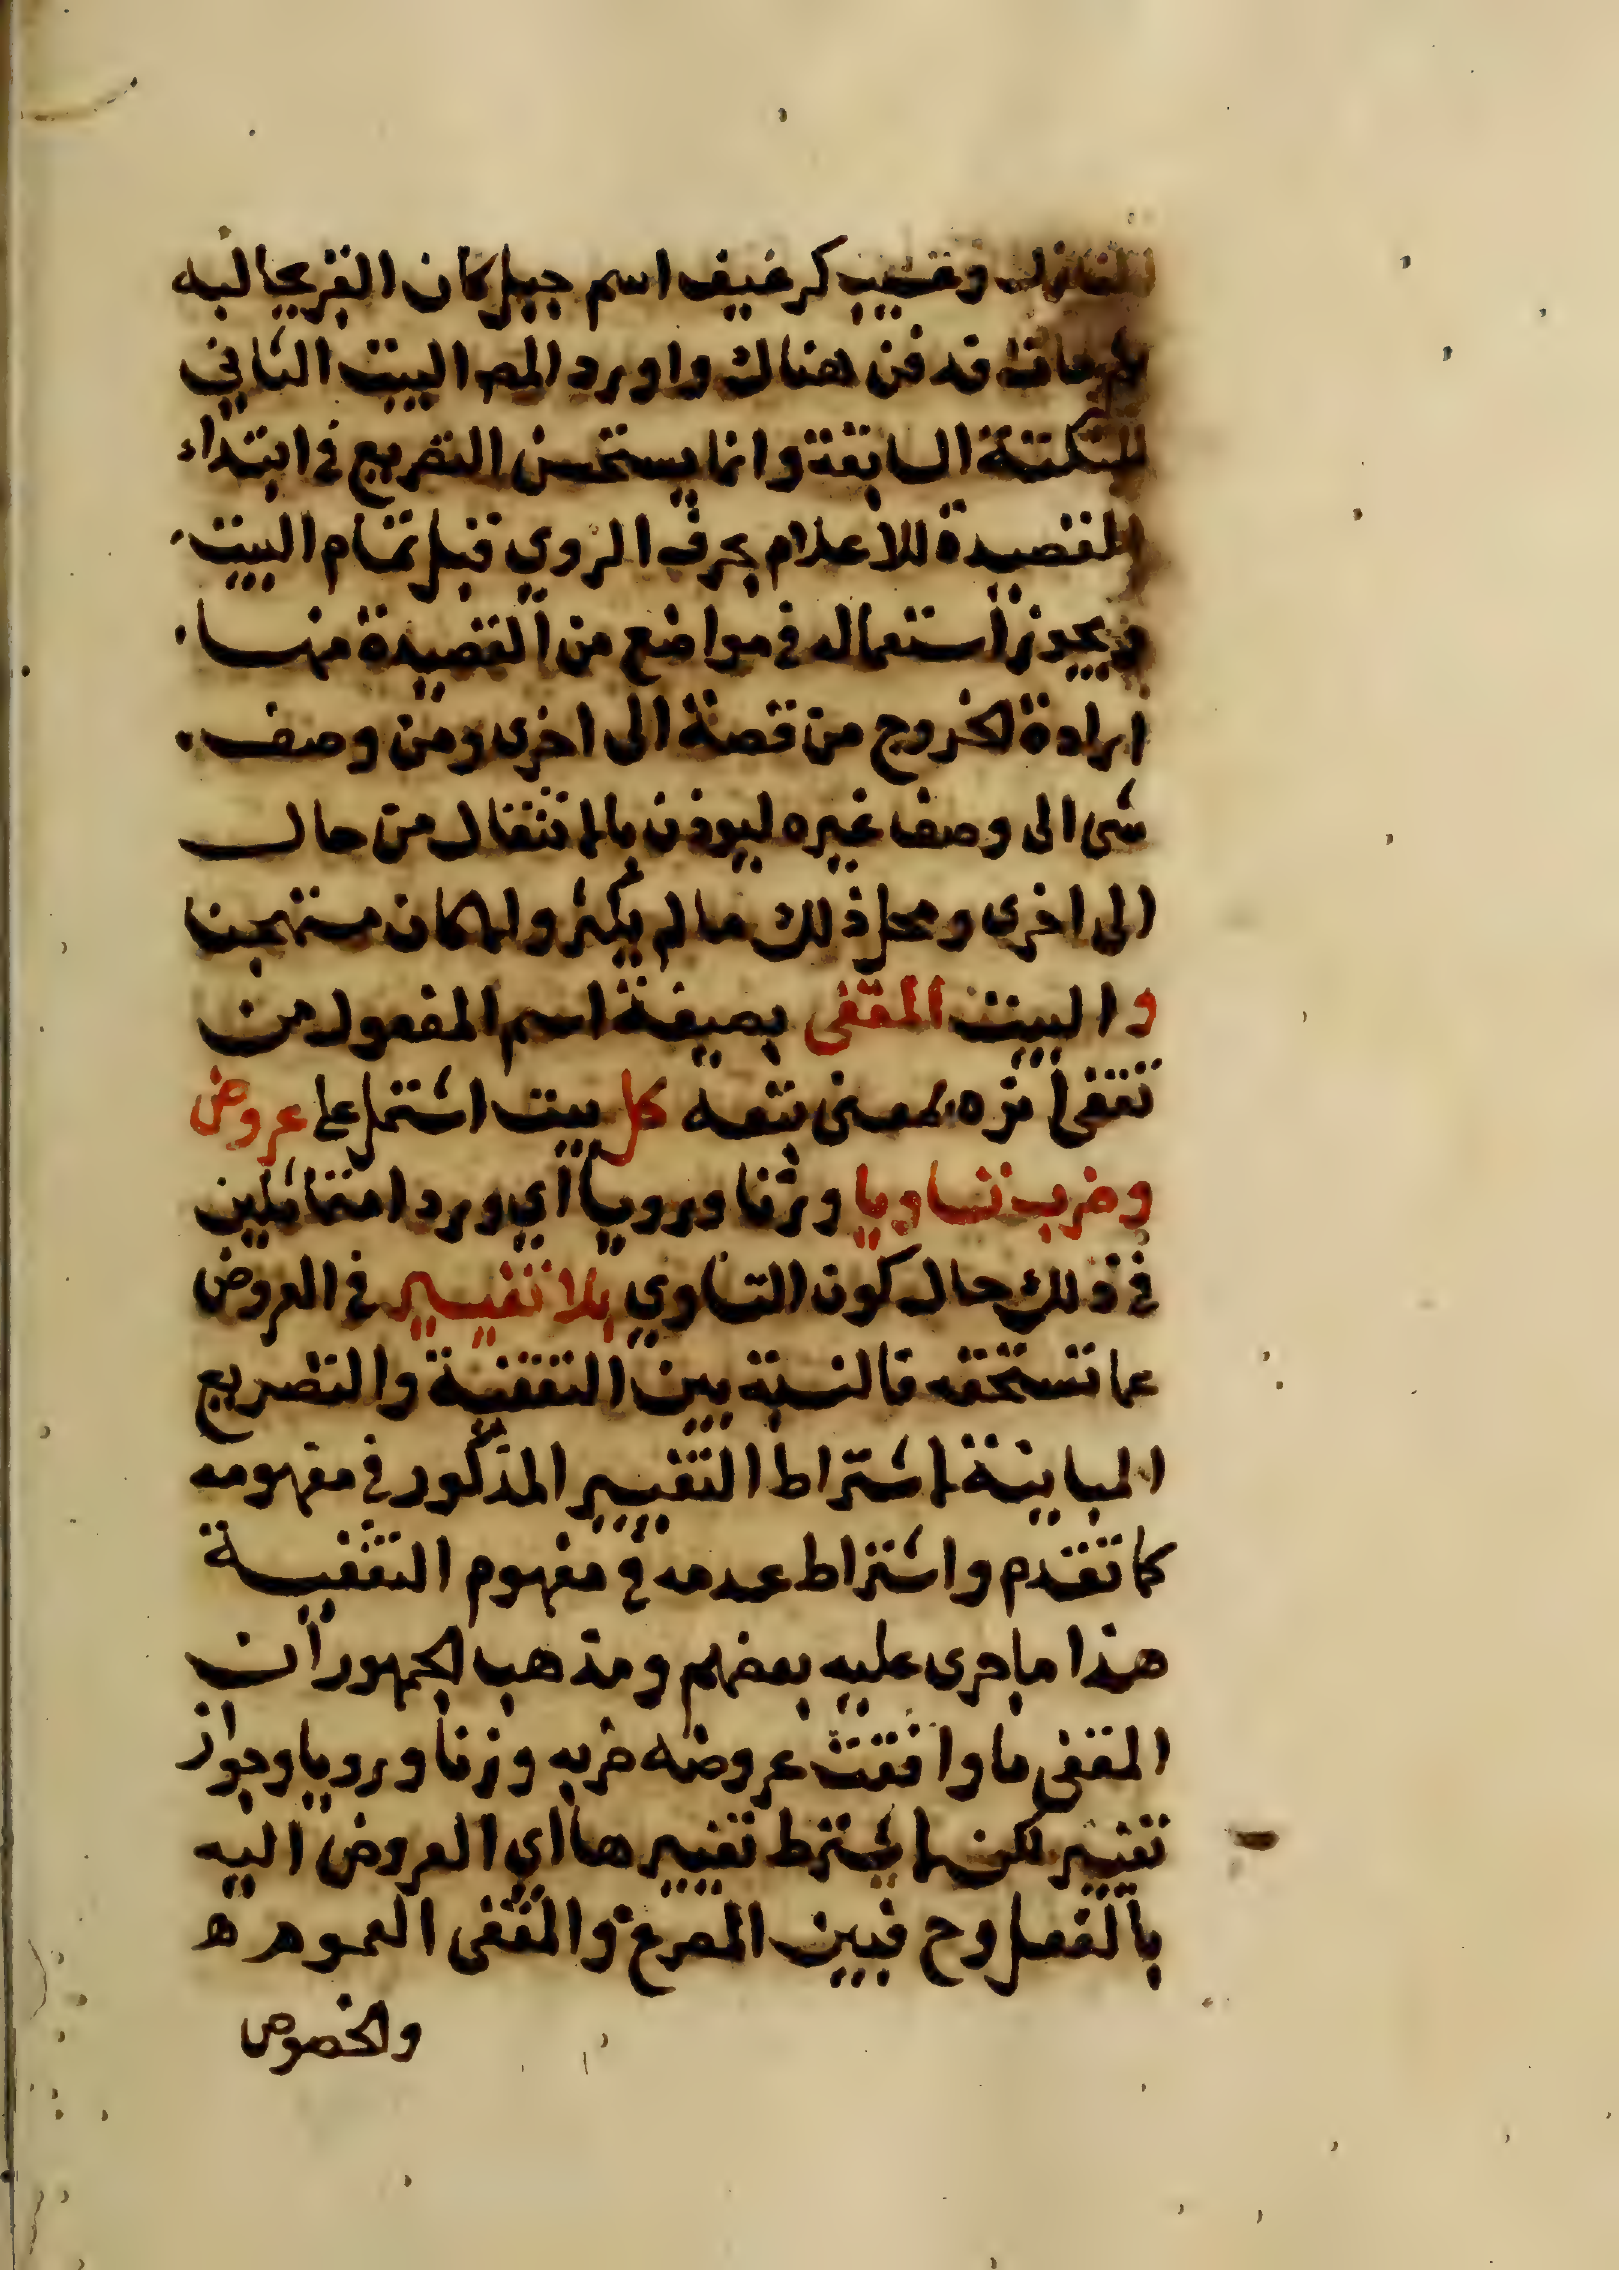 وعسيب كرغيف اسم جبل كان القريحا اليه
فدفن هناك واورد المص البيت الثاني
للنكتة السابقة وانما يستحسن التصريع في ابتداء
القصيدة للاعلام بحرف الروي قبل تمام البيت
ويجوز استعماله في مواضع من القصيدة منها
ارادة الخروج من قصة الى اخرى ومن وصف
شى الى وصف غيره ليوذن بالانتقال من حال
الى اخرى ومحل ذلك ما لم يكثر والا كان مستهجنا
والبيت المقفى بصيغة اسم المفعول من
تقفى اثره بمعنى تبعه كل بيت اشتمل على عروض
وضرب تساويا وزنا ورويا اي وردا متماثلين
في ذلك حال كون التساوي بلا تغيير في العروض
عما تستحقه فالنسبة بين التقفية والتصريع
المباينة لاشتراط التغيير المذكور في مفهومه
كما تقدم واشتراط عدمه في مفهوم التقفية
هذا ما جرى عليه بعضهم ومذهب الجمهور ان
المقفى ما وافقت عروضه ضربه وزنا ورويا وجواز
تغيير لكن لا يشترط تغييرها اي العروض اليه
بالفعل وح فبين المصرع والمقفى العموم
والخصوص